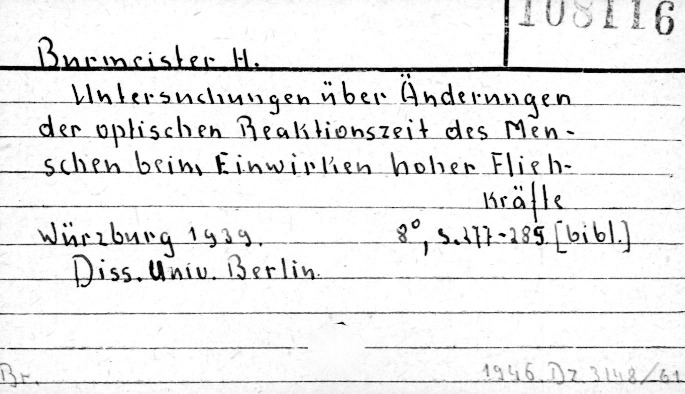 108116
Burmeister H.
Untersuchungen über Änderungen
der optischen Reaktionszeit des Men-
schen beim Einwirken hoher Flieh-
kräfte
Würzburg 1939. 8°, s. 277-285 [bibl.]
Diss. Univ. Berlin.
Br. 1946. Dz. 3148/61